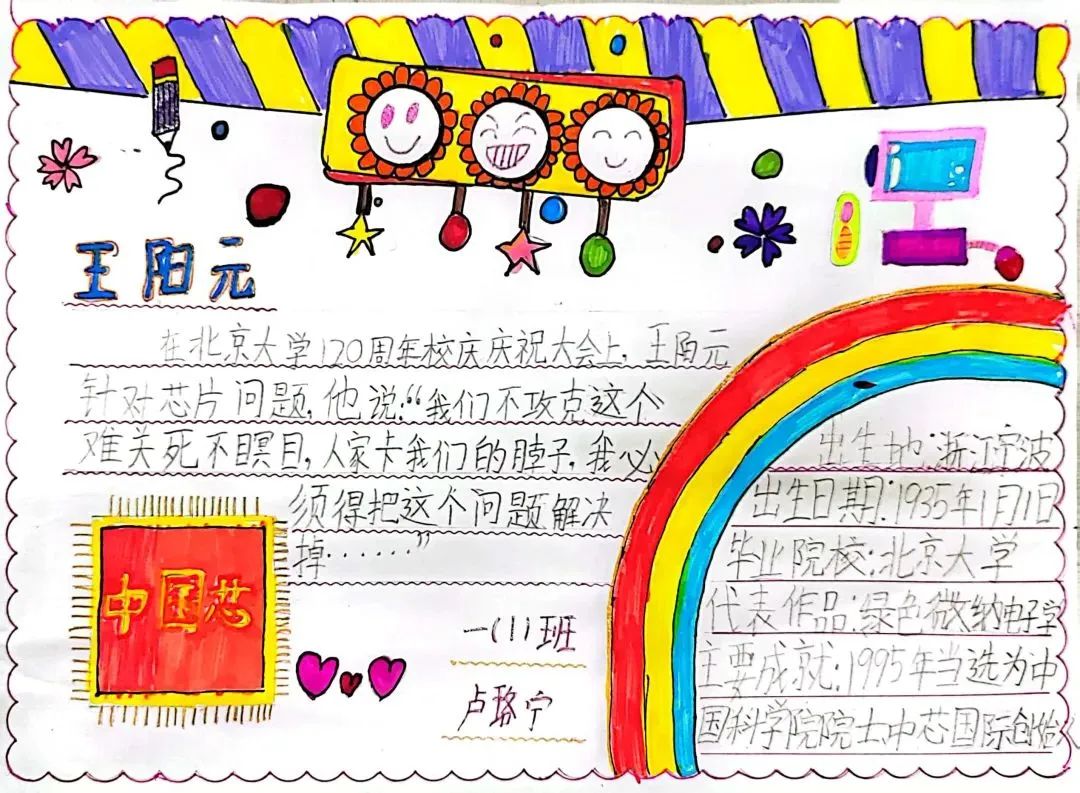 王阳元
在北京大学120周年校庆庆祝大会上,王阳元
针对芯片问题,他说:“我们不攻克这个
难关死不瞑目,人家卡我们的脖子,我必
须得把这个问题解决
掉......”
中国芯
一(11)班
卢璐宁
出生地:浙江宁波
出生日期:1935年1月1日
毕业院校:北京大学
代表作品:绿色微纳电子学
主要成就:1995年当选为中
国科学院院士中芯国际创始人